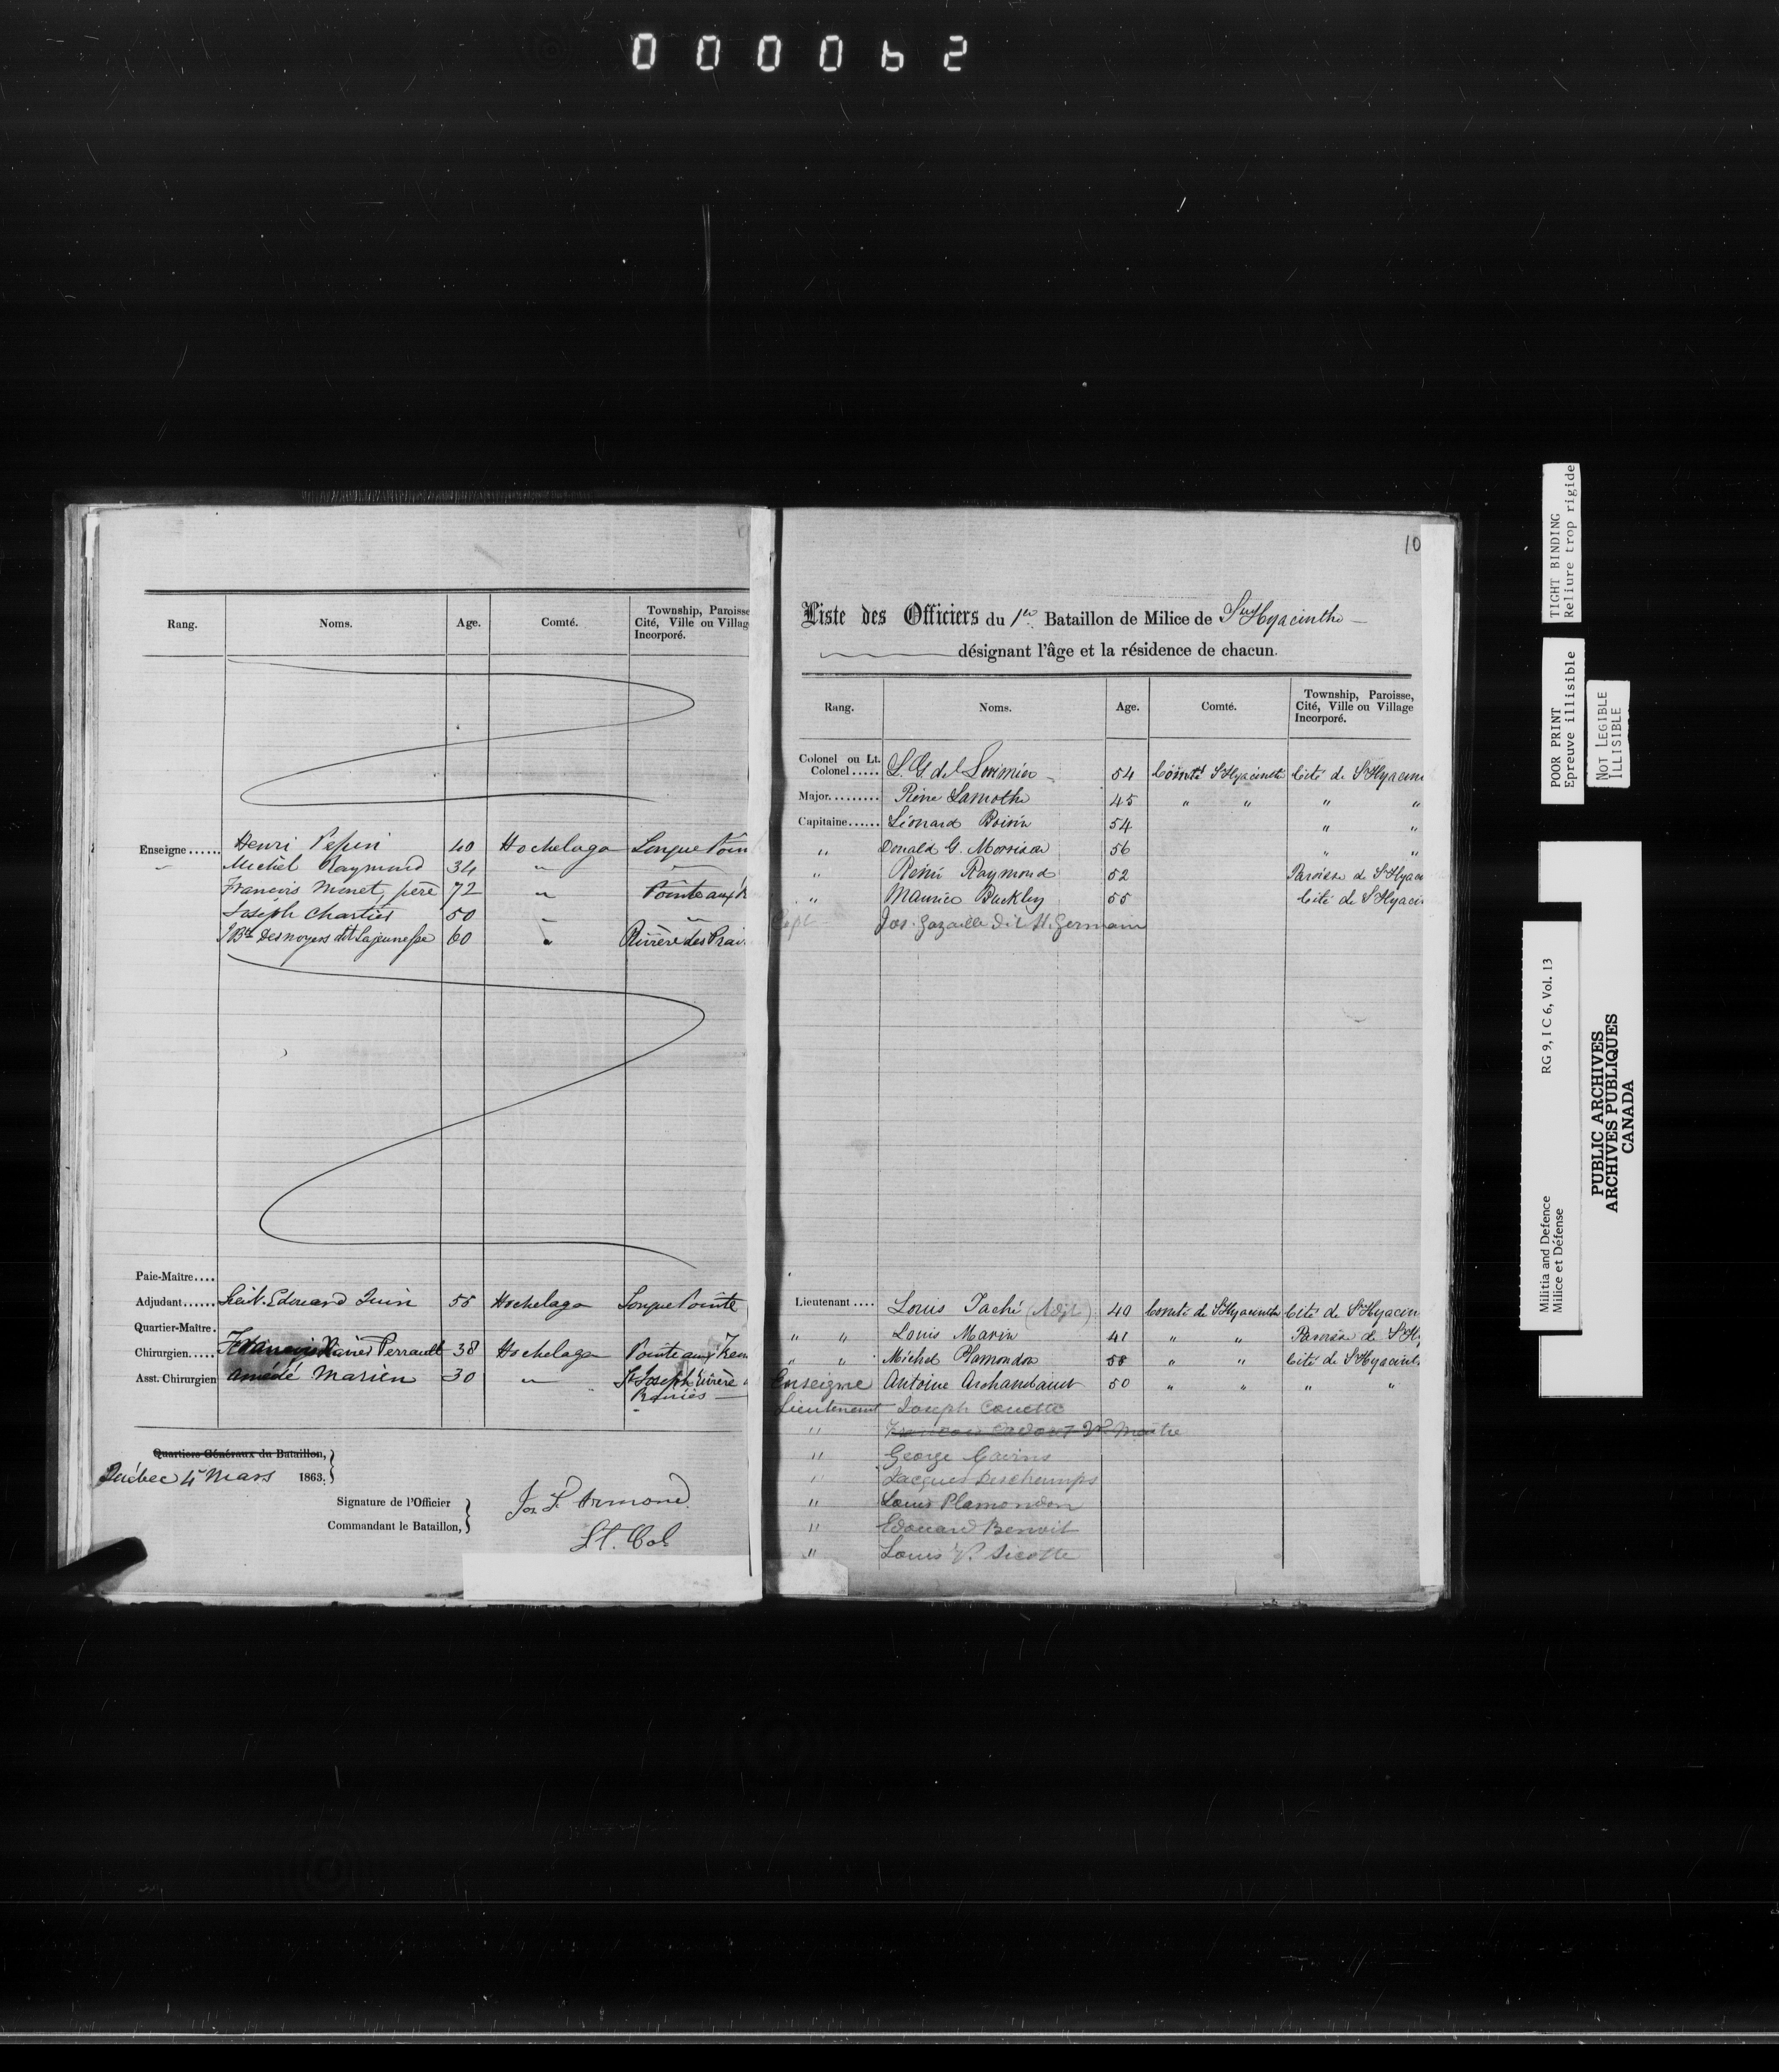 000062
Rang. Noms. Age. Comté. Township, Paroisse
Cité, Ville ou Villag
Incorporé.
Enseigne...... Henri Pepin 40 Hochelaga Longue Poin
" Michel Raymond 34 " "
Francois Monet, père 72 " Pointe aux
Joseph Chartier 50 " "
J Bte Desnoyers dit Lajeunesse 60 " Rivière des Prai
Paie-Maître....
Adjudant...... Lieut. Edouard Quin 55 Hochelaga Longue Pointe
Quartier-Maître.
Chirurgien..... Francois Xavier Perrault 38 Hochelaga Pointe aux Trem
Asst. Chirurgien Amédé Marien 30 " St Joseph Rivière
Quartiers Généraux du Bataillon,
Québec 4 Mars 1863.
Signature de l'Officier
Commandant le Bataillon,
Lt. Col
10
Liste des Officiers du 1er Bataillon de Milice de St Hyacinthe
désignant l'âge et la résidence de chacun.
Rang. Noms. Age. Comté. Township, Paroisse,
Cité, Ville ou Village
Incorporé.
Colonel ou Lt.
Colonel..... L. G. de Lorimier 54 Comté St Hyacinthe Cité de St Hyacin
Major......... Réné Lamothe 45 " " " "
Capitaine...... Léonard Boivin 54 " "
" Donald G. Morrison 56 " "
" Rémi Raymond 52 Paroisse de St Hyac
" Maurice Buckley 55 Cité de St Hyaci
Capt Jos. Gazaille dit St. Germain
Lieutenant.... Louis Taché (Adjt) 40 Comté de St Hyacinthe Cité de St Hyacin
" " Louis Marin 41 " " Paroisse de St H
" " Michel Plamondon 58 " " Cité de St Hyacint
Enseigne Antoine Archambault 50 " " " "
Lieutenant Joseph Couette
" Maître
" George Cairns
" Jacques Deschamps
" Louis Plamondon
" Edouard Benoit
" Louis V. Sicotte
TIGHT BINDING
Reliure trop rigide
POOR PRINT
Epreuve illisible
NOT LEGIBLE
ILLISIBLE
RG 9, I C 6, Vol. 13
Militia and Defence
Milice et Défense
PUBLIC ARCHIVES
ARCHIVES PUBLIQUES
CANADA